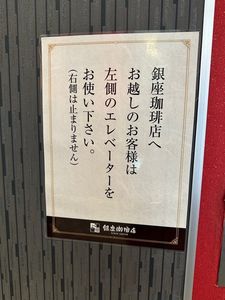 銀座珈琲店へ
お越しのお客様は
左側のエレベーターを
お使い下さい。
(右側は止まりません)
銀座珈琲店